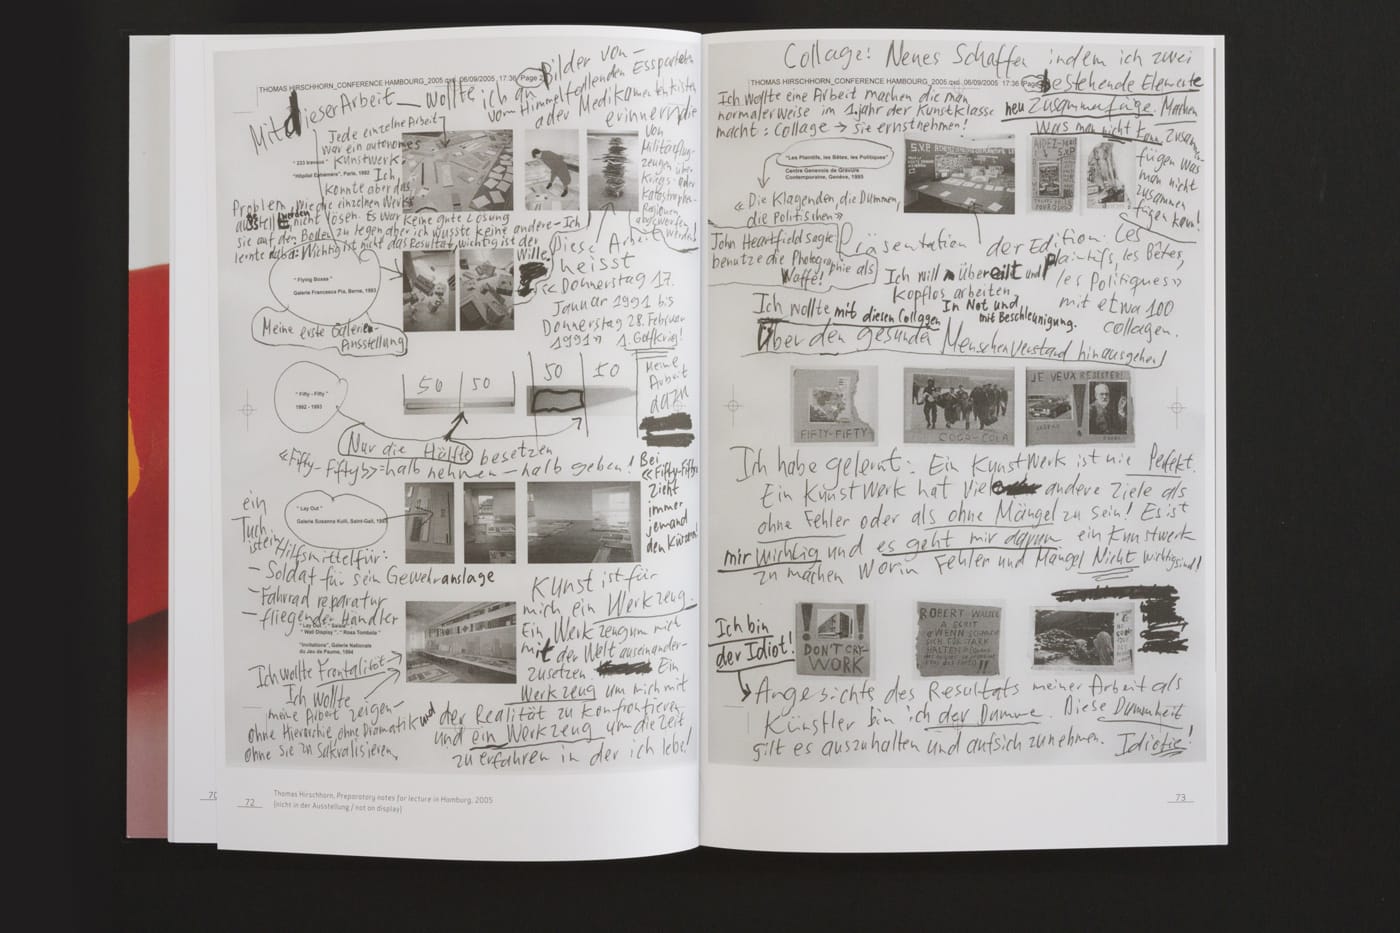 THOMAS HIRSCHHORN_CONFERENCE HAMBOURG_2005.qxd 06/09/2005 17:36 Page 2
Mit dieser Arbeit — wollte ich an Bilder von —
vom Himmel fallenden Esspaketen
oder Medikamentenkisten
erinnern die
von
Militärflug-
zeugen über
Kriegs- oder
Katastrophen-
Regionen
abgeworfen
werden!
Jede einzelne Arbeit
war ein autonomes
Kunstwerk.
Ich
konnte aber das
Problem, wie die einzelnen Werke
ausstellen, nicht lösen. Es war keine gute Lösung
sie auf den Boden zu legen aber ich wusste keine andere – Ich
lernte dabei: Wichtig ist nicht das Resultat, wichtig ist der
Wille.
"Hôpital Ephémère", Paris, 1992
" Flying Boxes "
Galerie Francesca Pia, Berne, 1993
Meine erste Galerien-
Ausstellung
Diese Arbeit
heisst
« Donnerstag 17.
Januar 1991 bis
Donnerstag 28. Februar
1991 » 1. Golfkrieg!
Meine
Arbeit
dazu
" Fifty - Fifty "
1992 - 1993
50 50 50 50
Nur die Hälfte besetzen
«Fifty-Fifty» = halb nehmen – halb geben!
Bei
«Fifty-Fifty»
zieht
immer
jemand
den Kürzeren!
" Lay Out "
Galerie Susanna Kulli, Saint-Gall, 1993
ein
Tuch
ist ein Hilfsmittel für:
– Soldat für sein Gewehr anslage
– Fahrrad reparatur
– fliegender Händler
" Wall Display ", " Rosa Tombola "
"Invitations", Galerie Nationale
du Jeu de Paume, 1994
Ich wollte Frontalität
Ich wollte
meine Arbeit zeigen –
ohne Hierarchie, ohne Dramatik und
ohne sie zu Sakralisieren
Kunst ist für
mich ein Werkzeug.
Ein Werkzeug um mich
mit der Welt auseinander-
zusetzen. Ein
Werkzeug um mich mit
der Realität zu konfrontieren
und ein Werkzeug um die Zeit
zu erfahren in der ich lebe!
70
72
Thomas Hirschhorn, Preparatory notes for lecture in Hamburg, 2005
(nicht in der Ausstellung / not on display)
Collage: Neues Schaffen indem ich zwei
bestehende Elemente
neu zusammenfüge. Machen
was man nicht kann. Zusam-
fügen was
man nicht
zusammen
fügen kann!
THOMAS HIRSCHHORN_CONFERENCE HAMBOURG_2005.qxd 06/09/2005 17:36 Page
Ich wollte eine Arbeit machen die man
normalerweise im 1. Jahr der Kunstklasse
macht: Collage → sie ernstnehmen!
"Les Plaintifs, les Bêtes, les Politiques"
Centre Genevois de Gravure
Contemporaine, Genève, 1995
« Die Klagenden, die Dummen,
die Politischen »
John Heartfield sagte:
benutze die Photographie als
Waffe!
Präsentation der Edition: Les
Plaintifs, les Bêtes,
les Politiques»
mit etwa 100
collagen.
Ich will übereilt und
Kopflos arbeiten.
In Not und
mit Beschleunigung.
Ich wollte mit diesen Collagen
Über den gesunden Menschenverstand hinausgehen!
FIFTY-FIFTY
COCA-COLA
JE VEUX RESISTER!
Ich habe gelernt: Ein Kunstwerk ist nie Perfekt.
Ein Kunstwerk hat viel andere Ziele als
ohne Fehler oder als ohne Mängel zu sein! Es ist
mir wichtig und es geht mir darum ein Kunstwerk
zu machen worin Fehler und Mängel Nicht wichtig sind!
DON'T CRY-
WORK
ROBERT WALSER
A ECRIT
Ich bin
der Idiot!
Angesichte des Resultats meiner Arbeit als
Künstler bin ich der Dumme. Diese Dummheit
gilt es auszuhalten und auf sich zu nehmen. Idiotie!
73